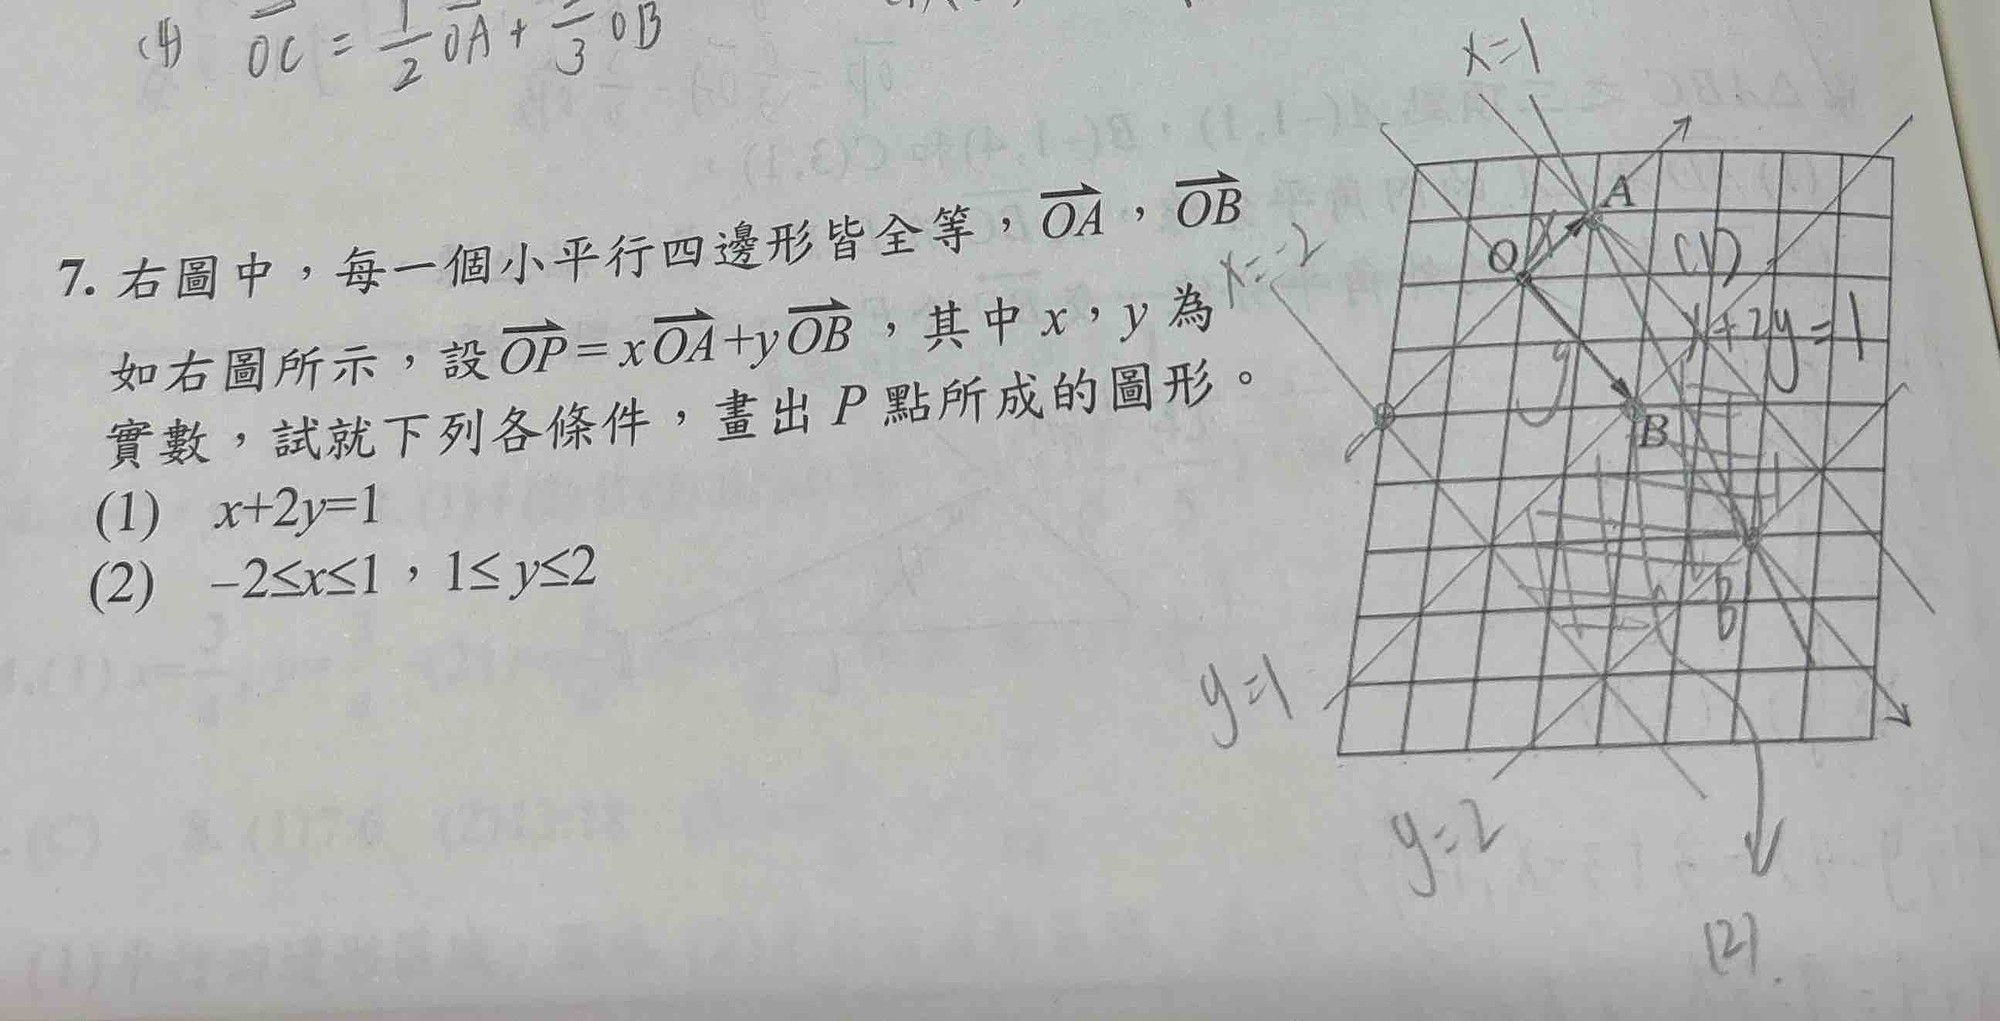 (4) OC = 1/2 OA + 1/3 OB
7. 右圖中，每一個小平行四邊形皆全等，OA，OB
如右圖所示，設OP=xOA+yOB，其中x，y為
實數，試就下列各條件，畫出P點所成的圖形。
(1) x+2y=1
(2) –2≤x≤1，1≤y≤2
x=1
A
O
x
(1)
x=-2
x+2y=1
y
B
B
y=1
y=2
(2)